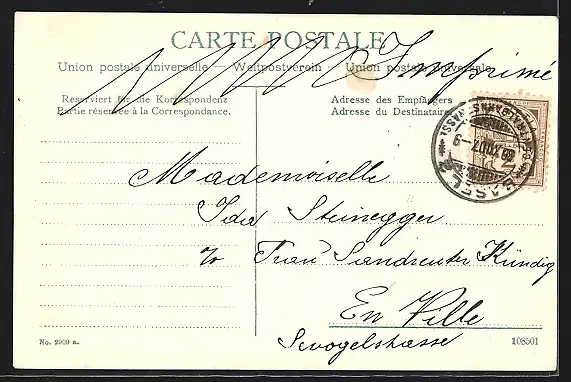 CARTE POSTALE
Imprimé
Union postale universelle — Weltpostverein — Union postale universale
Reserviert für die Korrespondenz
Partie réservée à la Correspondance.
Adresse des Empfängers
Adresse du Destinataire
Mademoiselle
Ida Steinegger
Frau Landreuter Kündig
En Ville
Sevogelstrasse
No. 2909 a.
108501